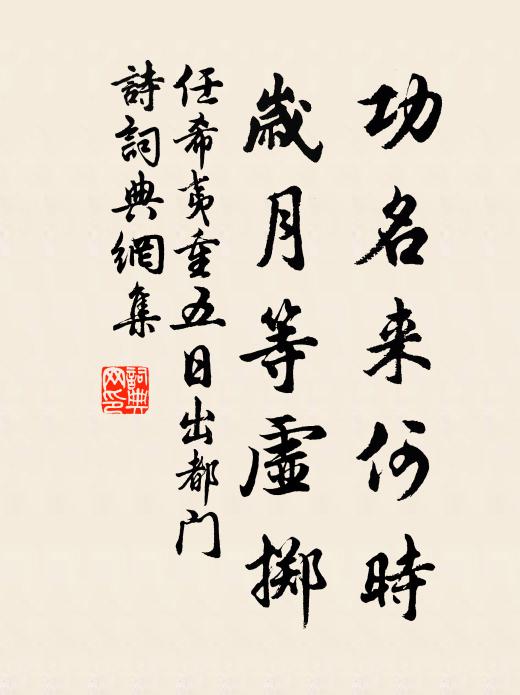 功名来何時
歲月等虛擲
任希夷重五日出都门
詩詞典網集
詞典網印